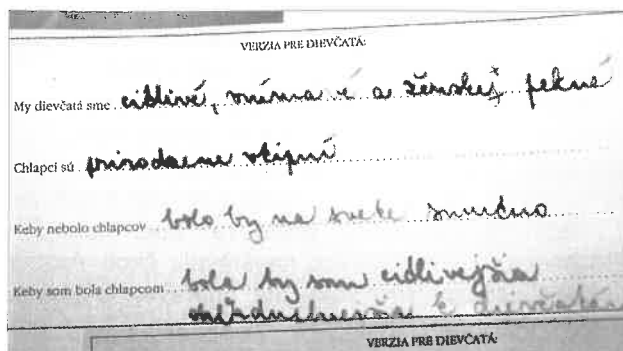 VERZIA PRE DIEVČATÁ:
My dievčatá sme citlivé, vnímavé a žensky pekné
Chlapci sú prirodzene vtipní
Keby nebolo chlapcov bolo by na svete smutno
Keby som bola chlapcom bola by som citlivejšia
k dievčatám
VERZIA PRE DIEVČATÁ: